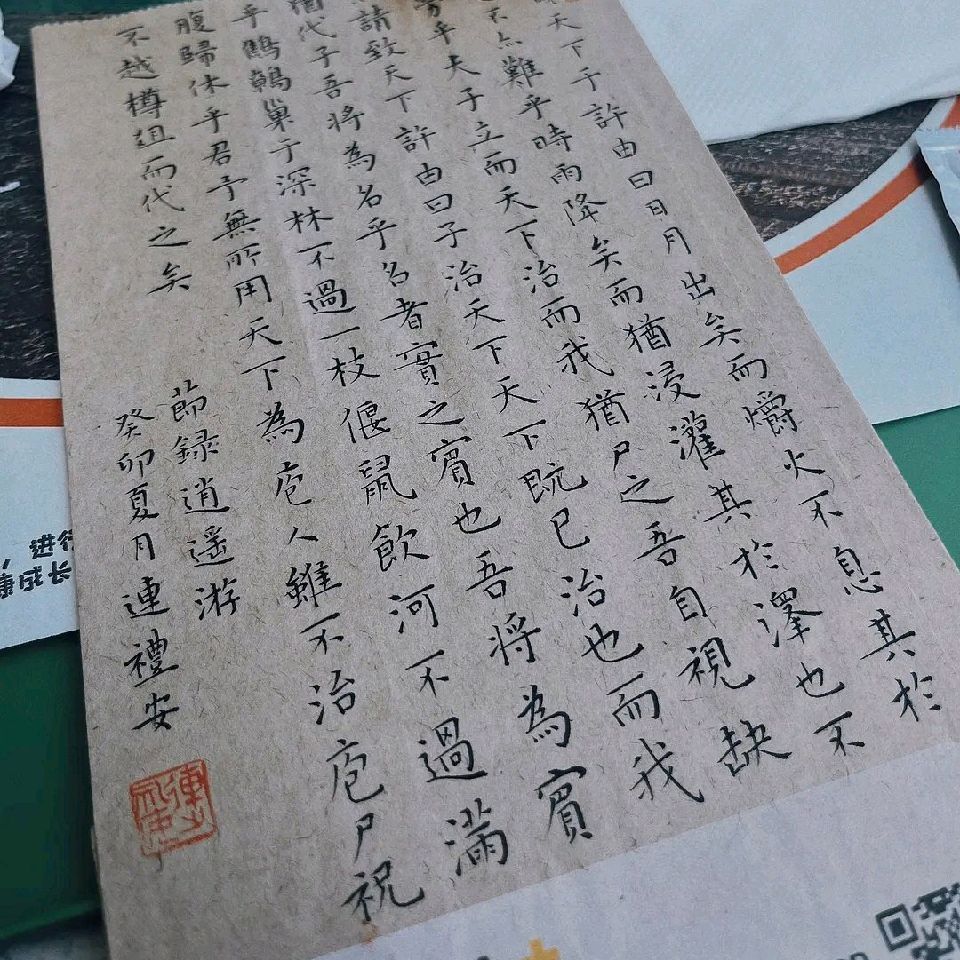 天下于許由曰日月出矣而爝火不息其於
不亦難乎時雨降矣而猶浸灌其於澤也不
勞乎夫子立而天下治而我猶尸之吾自視缺
請致天下許由曰子治天下天下既已治也而我
猶代子吾將為名乎名者實之賓也吾將為賓
乎鷦鷯巢于深林不過一枝偃鼠飲河不過滿
腹歸休乎君予無所用天下為庖人雖不治庖尸祝
不越樽俎而代之矣
節錄逍遙游
癸卯夏月連禮安
，进行
康成长